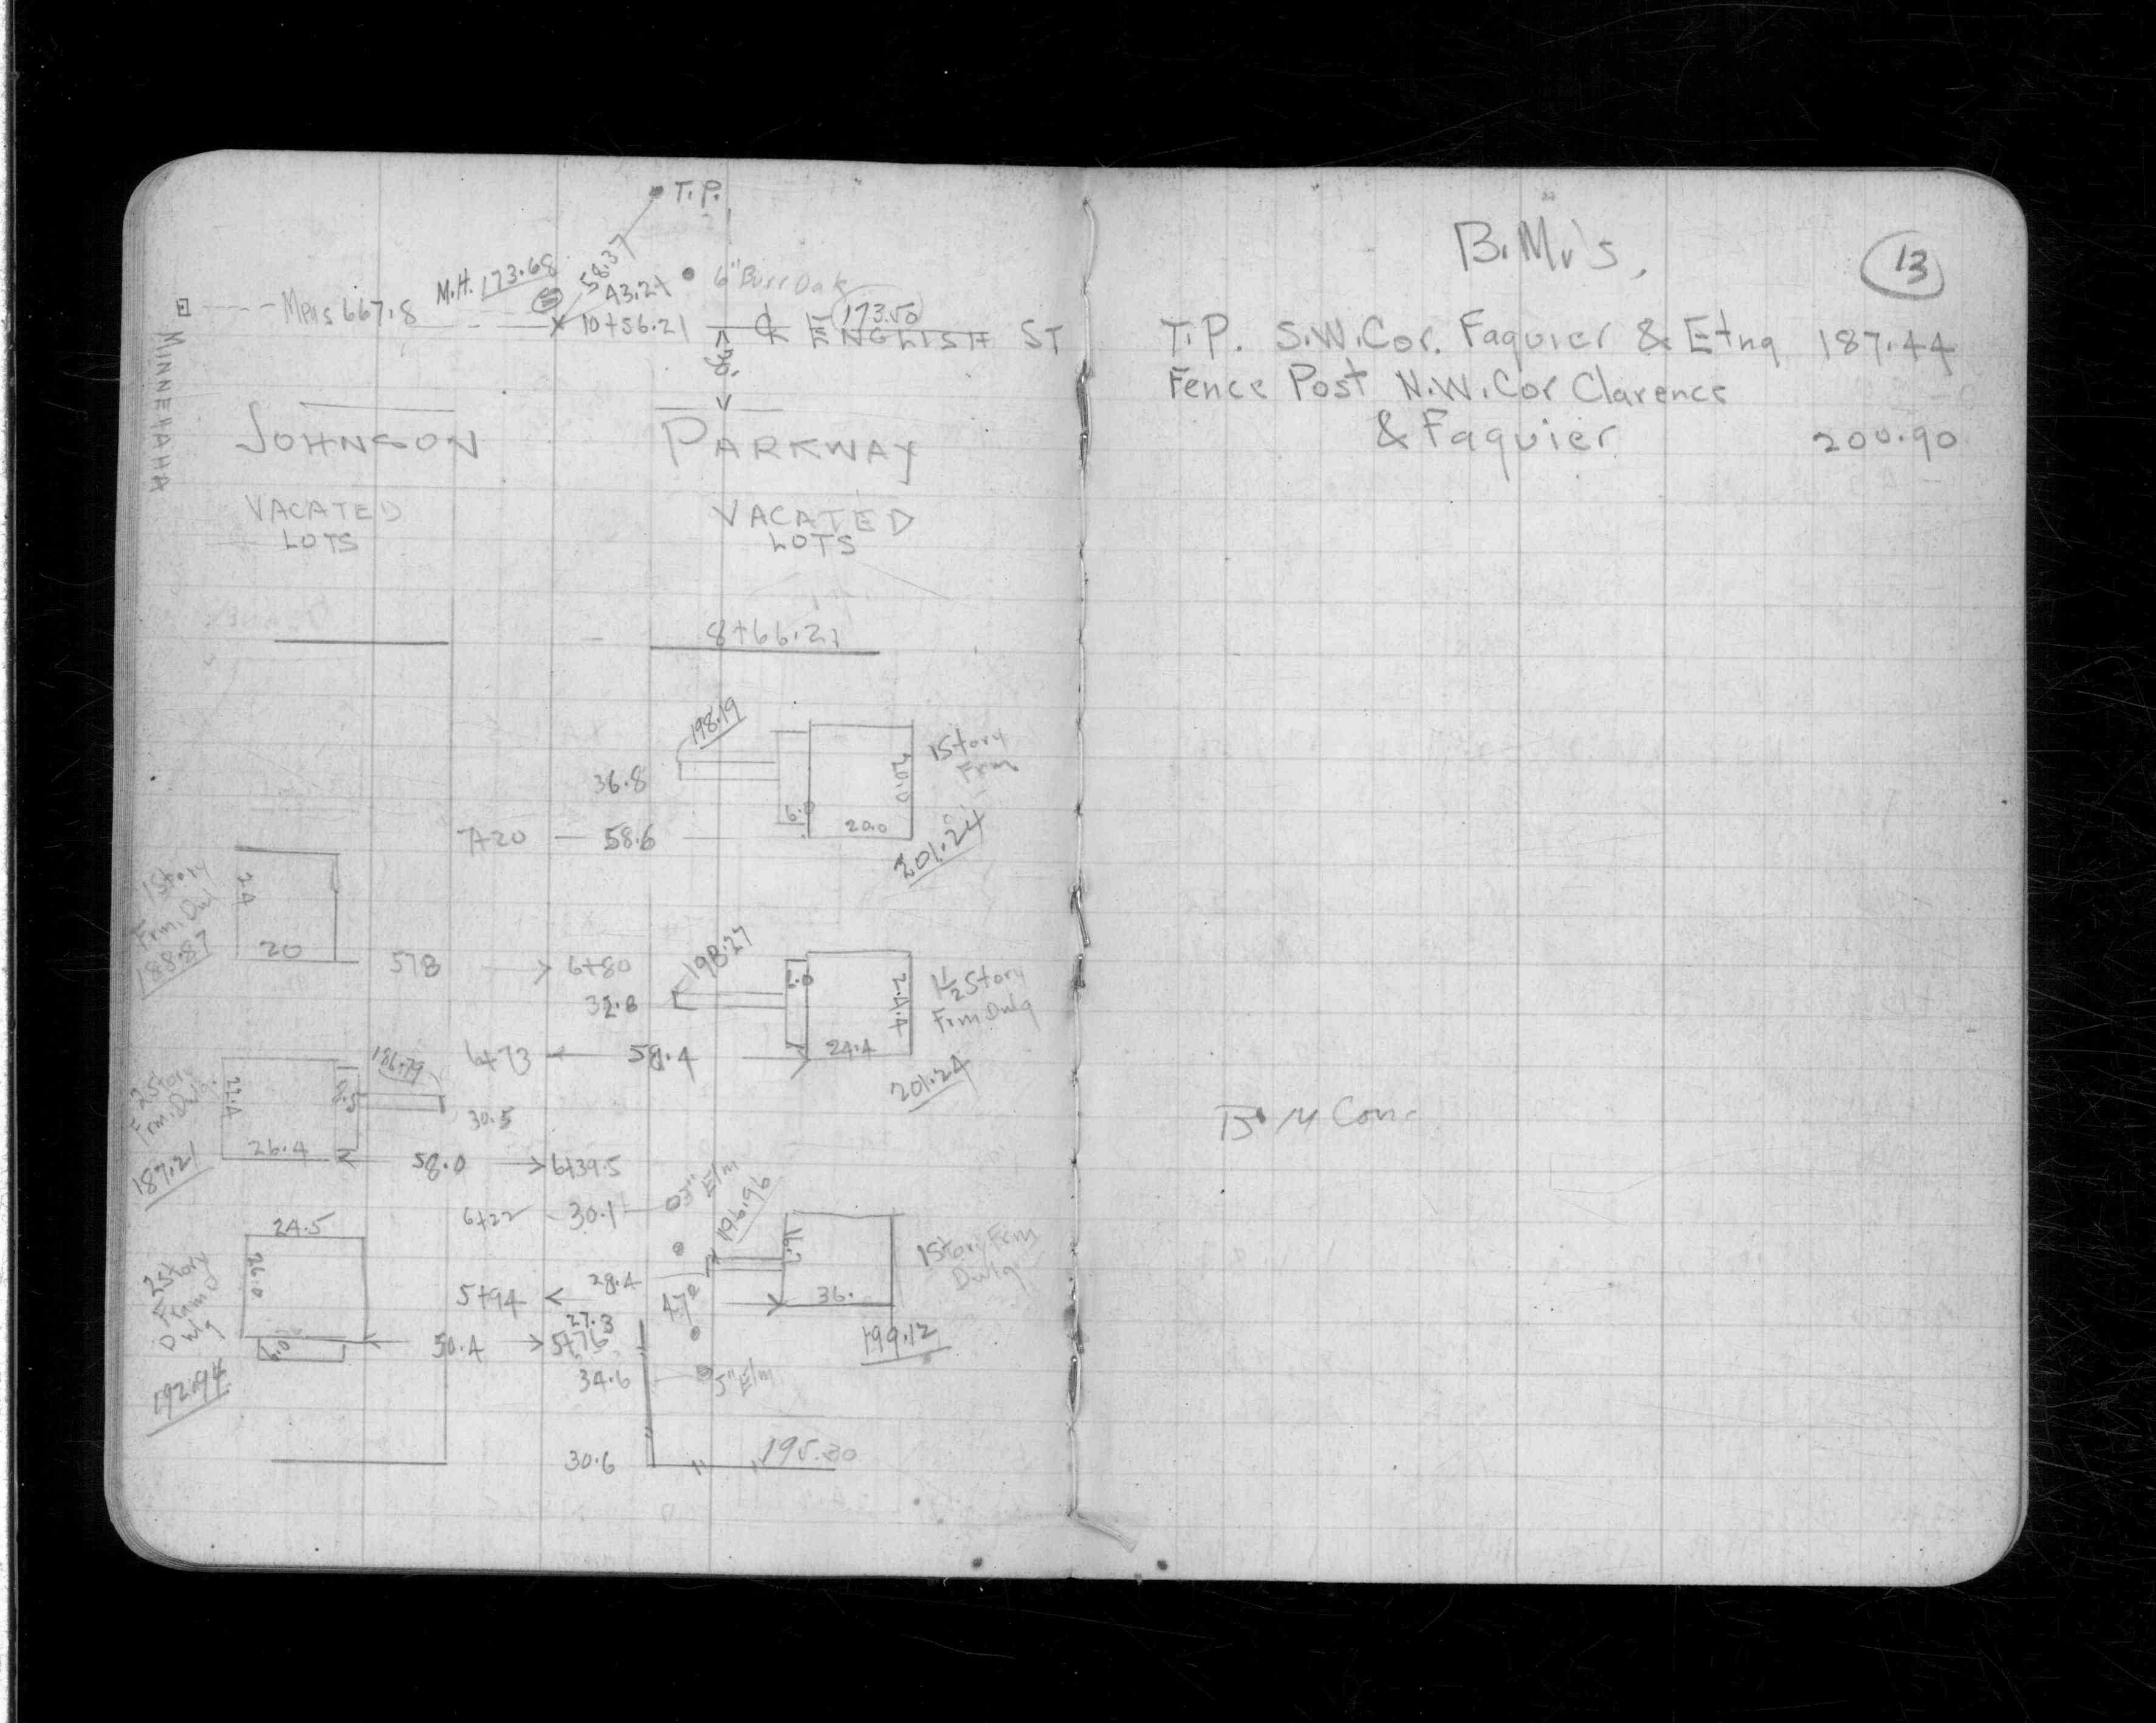 T.P.
58.37
43.21
6" Burr Oak
M.H. 173.68
Meas 667.8
10+56.21
173.50
℄ ENGLISH ST
MINNEHAHA
JOHNSON PARKWAY
VACATED LOTS
VACATED LOTS
8+66.21
198.19
36.8
6.0
20.0
20.0
1 Story
Frm
201.24
7+20 — 58.6
1 Story
Frm. Dwl
188.87
24
20
578 → 6+80
198.27
32.8
6.0
24.4
24.4
1½ Story
Frm Dwlg
201.24
6+73 58.4
2 Story
Frm. Dwlg.
187.21
22.4
26.4
186.79
30.5
58.0 → 6+39.5
6+22 - 30.1
Elm
196.96
24.5
26.0
2 Story
Fram D
Dwlg
192.94
6.0
5+94
28.4
47.2
36.
1 Story Frm
Dwlg
199.12
27.3
50.4 → 5+76
34.6
5" Elm
30.6
195.30
B.M's.
13
T.P. S.W. Cor. Faquier & Etna 187.44
Fence Post N.W. Cor Clarence
& Faquier 200.90
B.M Conc